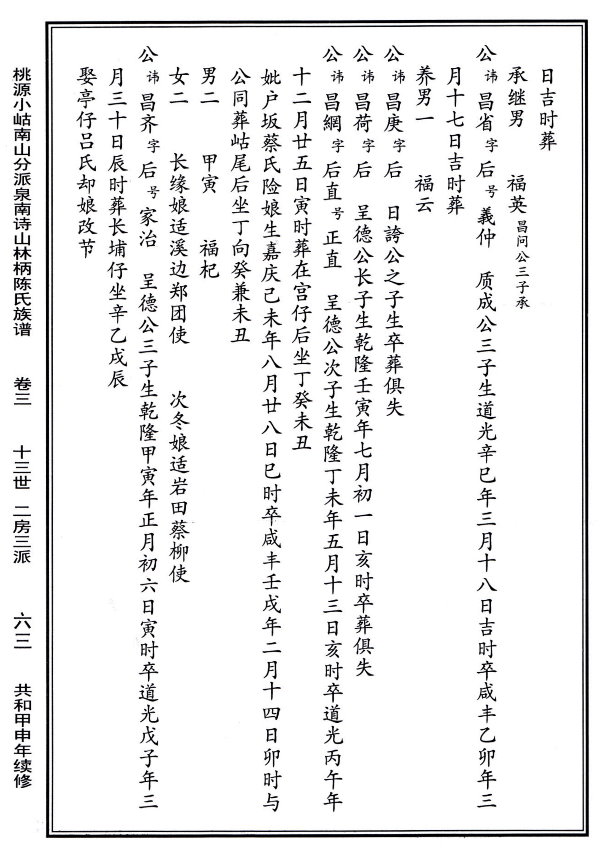 日吉时葬
承继男 福英 昌问公三子承
公 讳 昌省 字 后 号 義仲 质成公三子生道光辛巳年三月十八日吉时卒咸丰乙卯年三
月十七日吉时葬
养男一 福云
公 讳 昌庚 字 后 日誇公之子生卒葬俱失
公 讳 昌荷 字 后 呈德公长子生乾隆壬寅年七月初一日亥时卒葬俱失
公 讳 昌網 字 后直 号 正直 呈德公次子生乾隆丁未年五月十三日亥时卒道光丙午年
十二月廿五日寅时葬在宫仔后坐丁癸未丑
妣户坂蔡氏险娘生嘉庆己未年八月廿八日巳时卒咸丰壬戌年二月十四日卯时与
公同葬岵尾后坐丁向癸兼未丑
男二 甲寅 福杞
女二 长缘娘适溪边郑团使 次冬娘适岩田蔡柳使
公 讳 昌齐 字 后 号 家治 呈德公三子生乾隆甲寅年正月初六日寅时卒道光戊子年三
月三十日辰时葬长埔仔坐辛乙戌辰
娶亭仔吕氏却娘改节
桃源小岵南山分派泉南诗山林柄陈氏族谱 卷三 十三世 二房三派 六三 共和甲申年续修